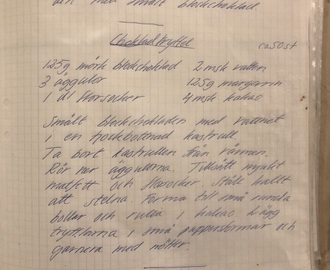 den med smält blockchoklad.
Chokladtryffel ca 50 st
125g mörk blockchoklad 2 msk vatten
3 äggulor 125g margarin
1 dl florsocker 4 msk kakao
Smält blockchokladen med vattnet
i en tjockbottnad kastrull.
Ta bort kastrullen från värmen.
Rör ner äggulorna. Tillsätt mjukt
matfett och florsocker. Ställ kallt
att stelna. Forma till små runda
bollar och rulla i kakao. Lägg
tryfflarna i små pappersformar och
garnera med nötter.